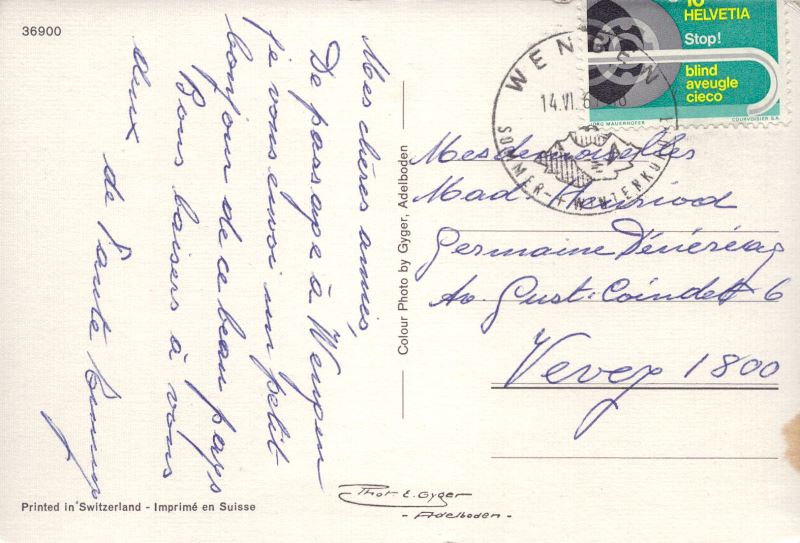 36900
Mes chères amies,
De passage à Wengen
je vous envoi un petit
bonjour de ce beau pays
Bons baisers à vous
deux
de Tante
Printed in Switzerland - Imprimé en Suisse
Colour Photo by Gyger, Adelboden
Phot. E. Gyger
- Adelboden -
10
HELVETIA
Stop!
blind
aveugle
cieco
JÖRG MAUERHOFER
COURVOISIER S.A.
WENGEN
14.VI.6
SOMMER- + WINTERKU
Mesdemoiselles
Mad. Henriod
Germaine
Av. Gust. Coindet 6
Vevey 1800